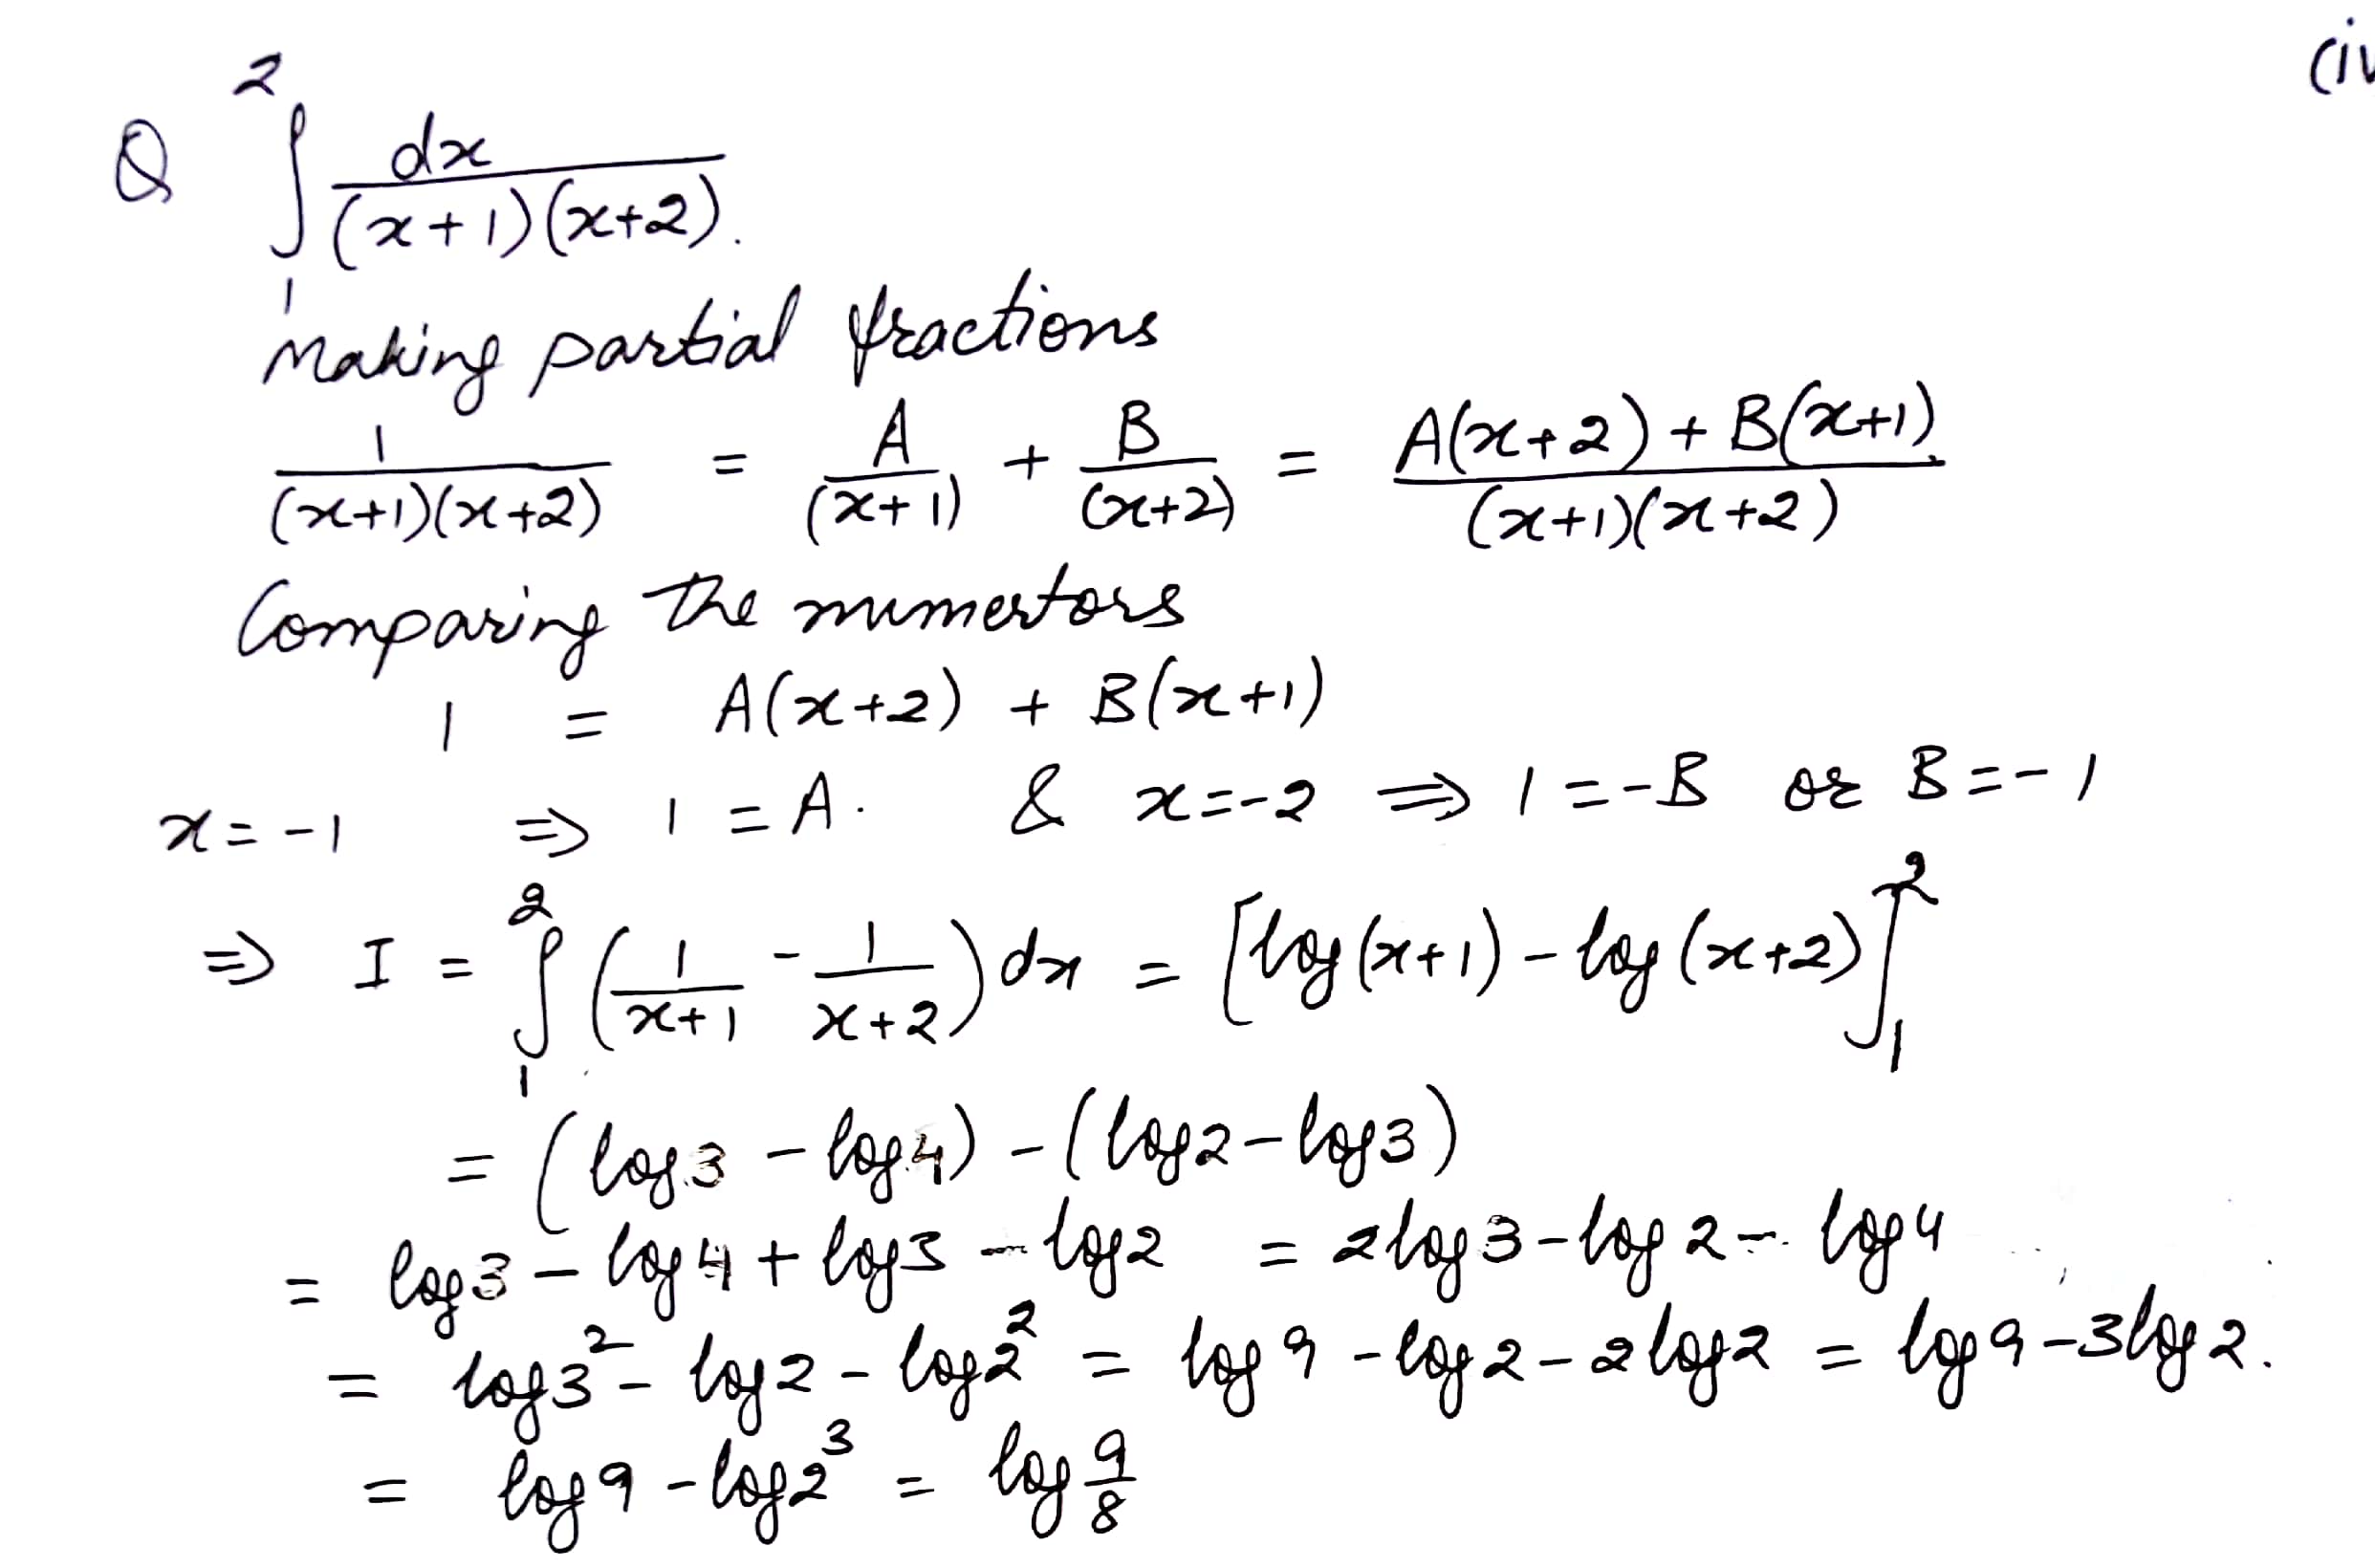 (iv
Q ∫₁² dx / (x+1)(x+2).
Making partial fractions
1/((x+1)(x+2)) = A/(x+1) + B/(x+2) = (A(x+2) + B(x+1))/((x+1)(x+2))
Comparing the numertors
1 = A(x+2) + B(x+1)
x = -1 ⇒ 1 = A. & x = -2 ⇒ 1 = -B or B = -1
⇒ I = ∫₁² (1/(x+1) - 1/(x+2)) dx = [log(x+1) - log(x+2)]₁²
= (log 3 - log 4) - (log 2 - log 3)
= log 3 - log 4 + log 3 - log 2 = 2 log 3 - log 2 - log 4
= log 3² - log 2 - log 2² = log 9 - log 2 - 2 log 2 = log 9 - 3 log 2.
= log 9 - log 2³ = log 9/8